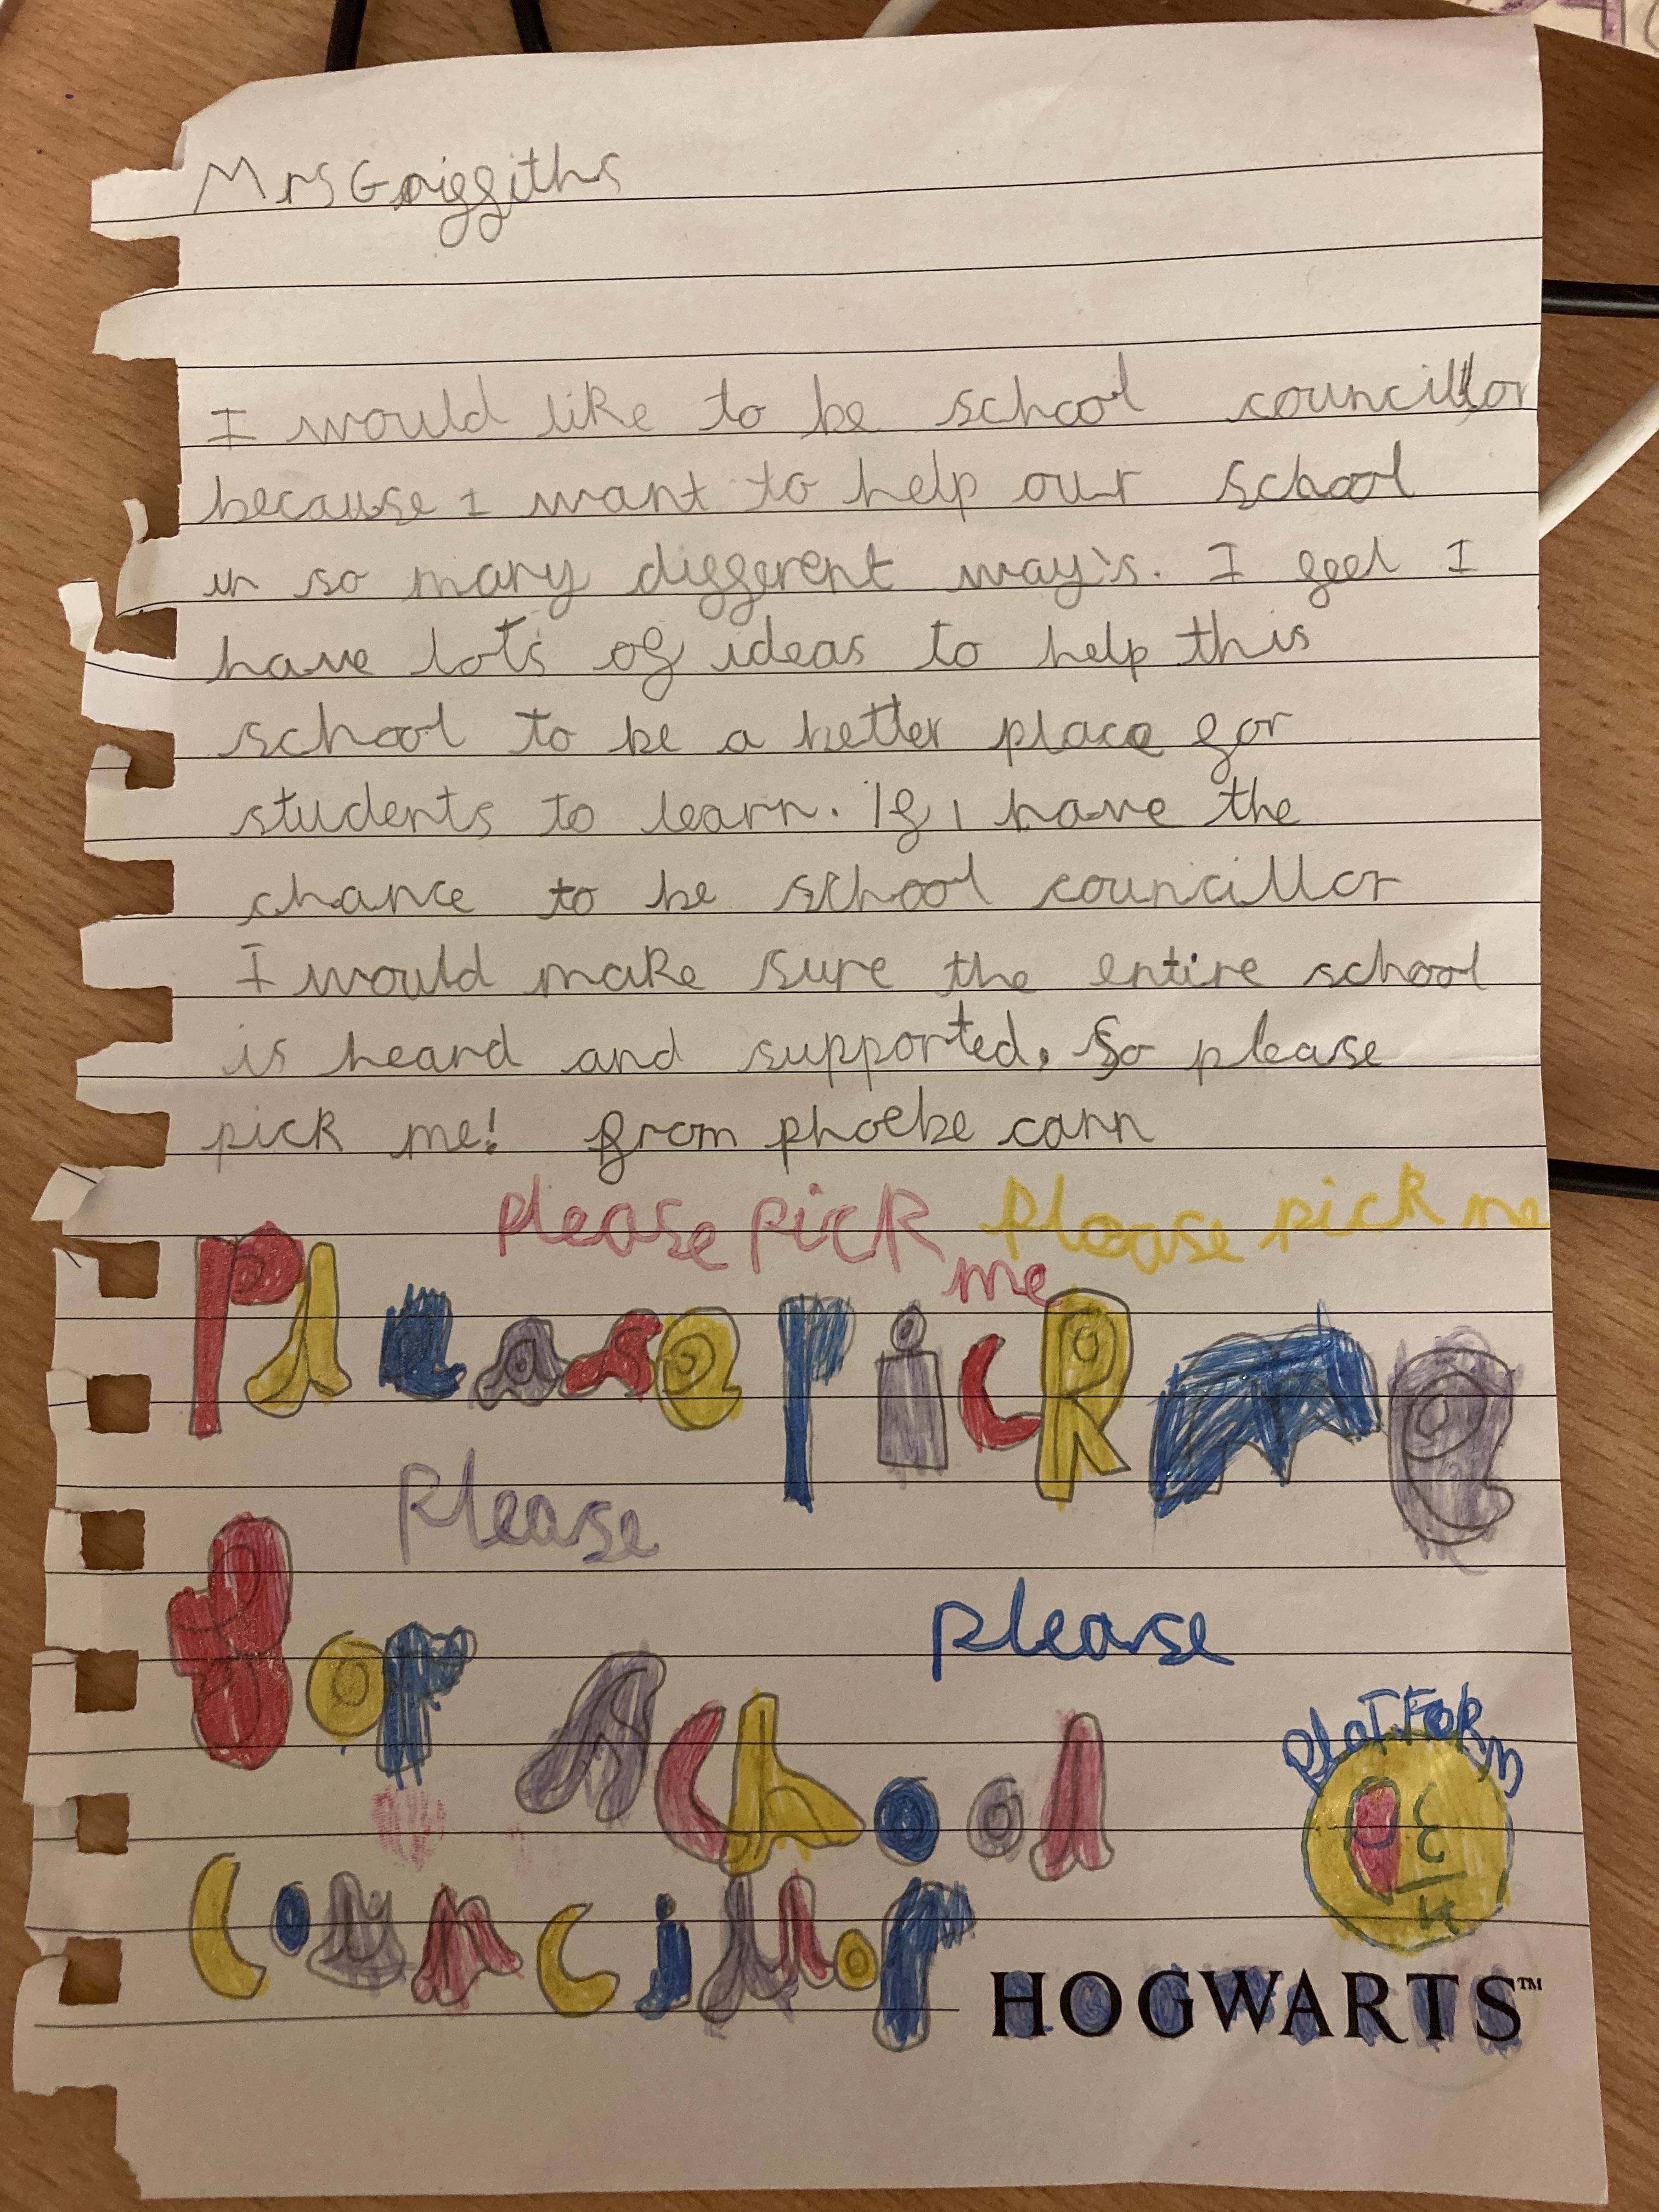 Mrs Griffiths
I would like to be school councillor
because I want to help our school
in so many different way's. I feel I
have lots of ideas to help this
school to be a better place for
students to learn. If I have the
chance to be school councillor
I would make sure the entire school
is heard and supported. So please
pick me! from phoebe cann
please pick me please pick me
Please pick me
Please
please
for school
PlaTForm
9 3/4
councillor
HOGWARTS™